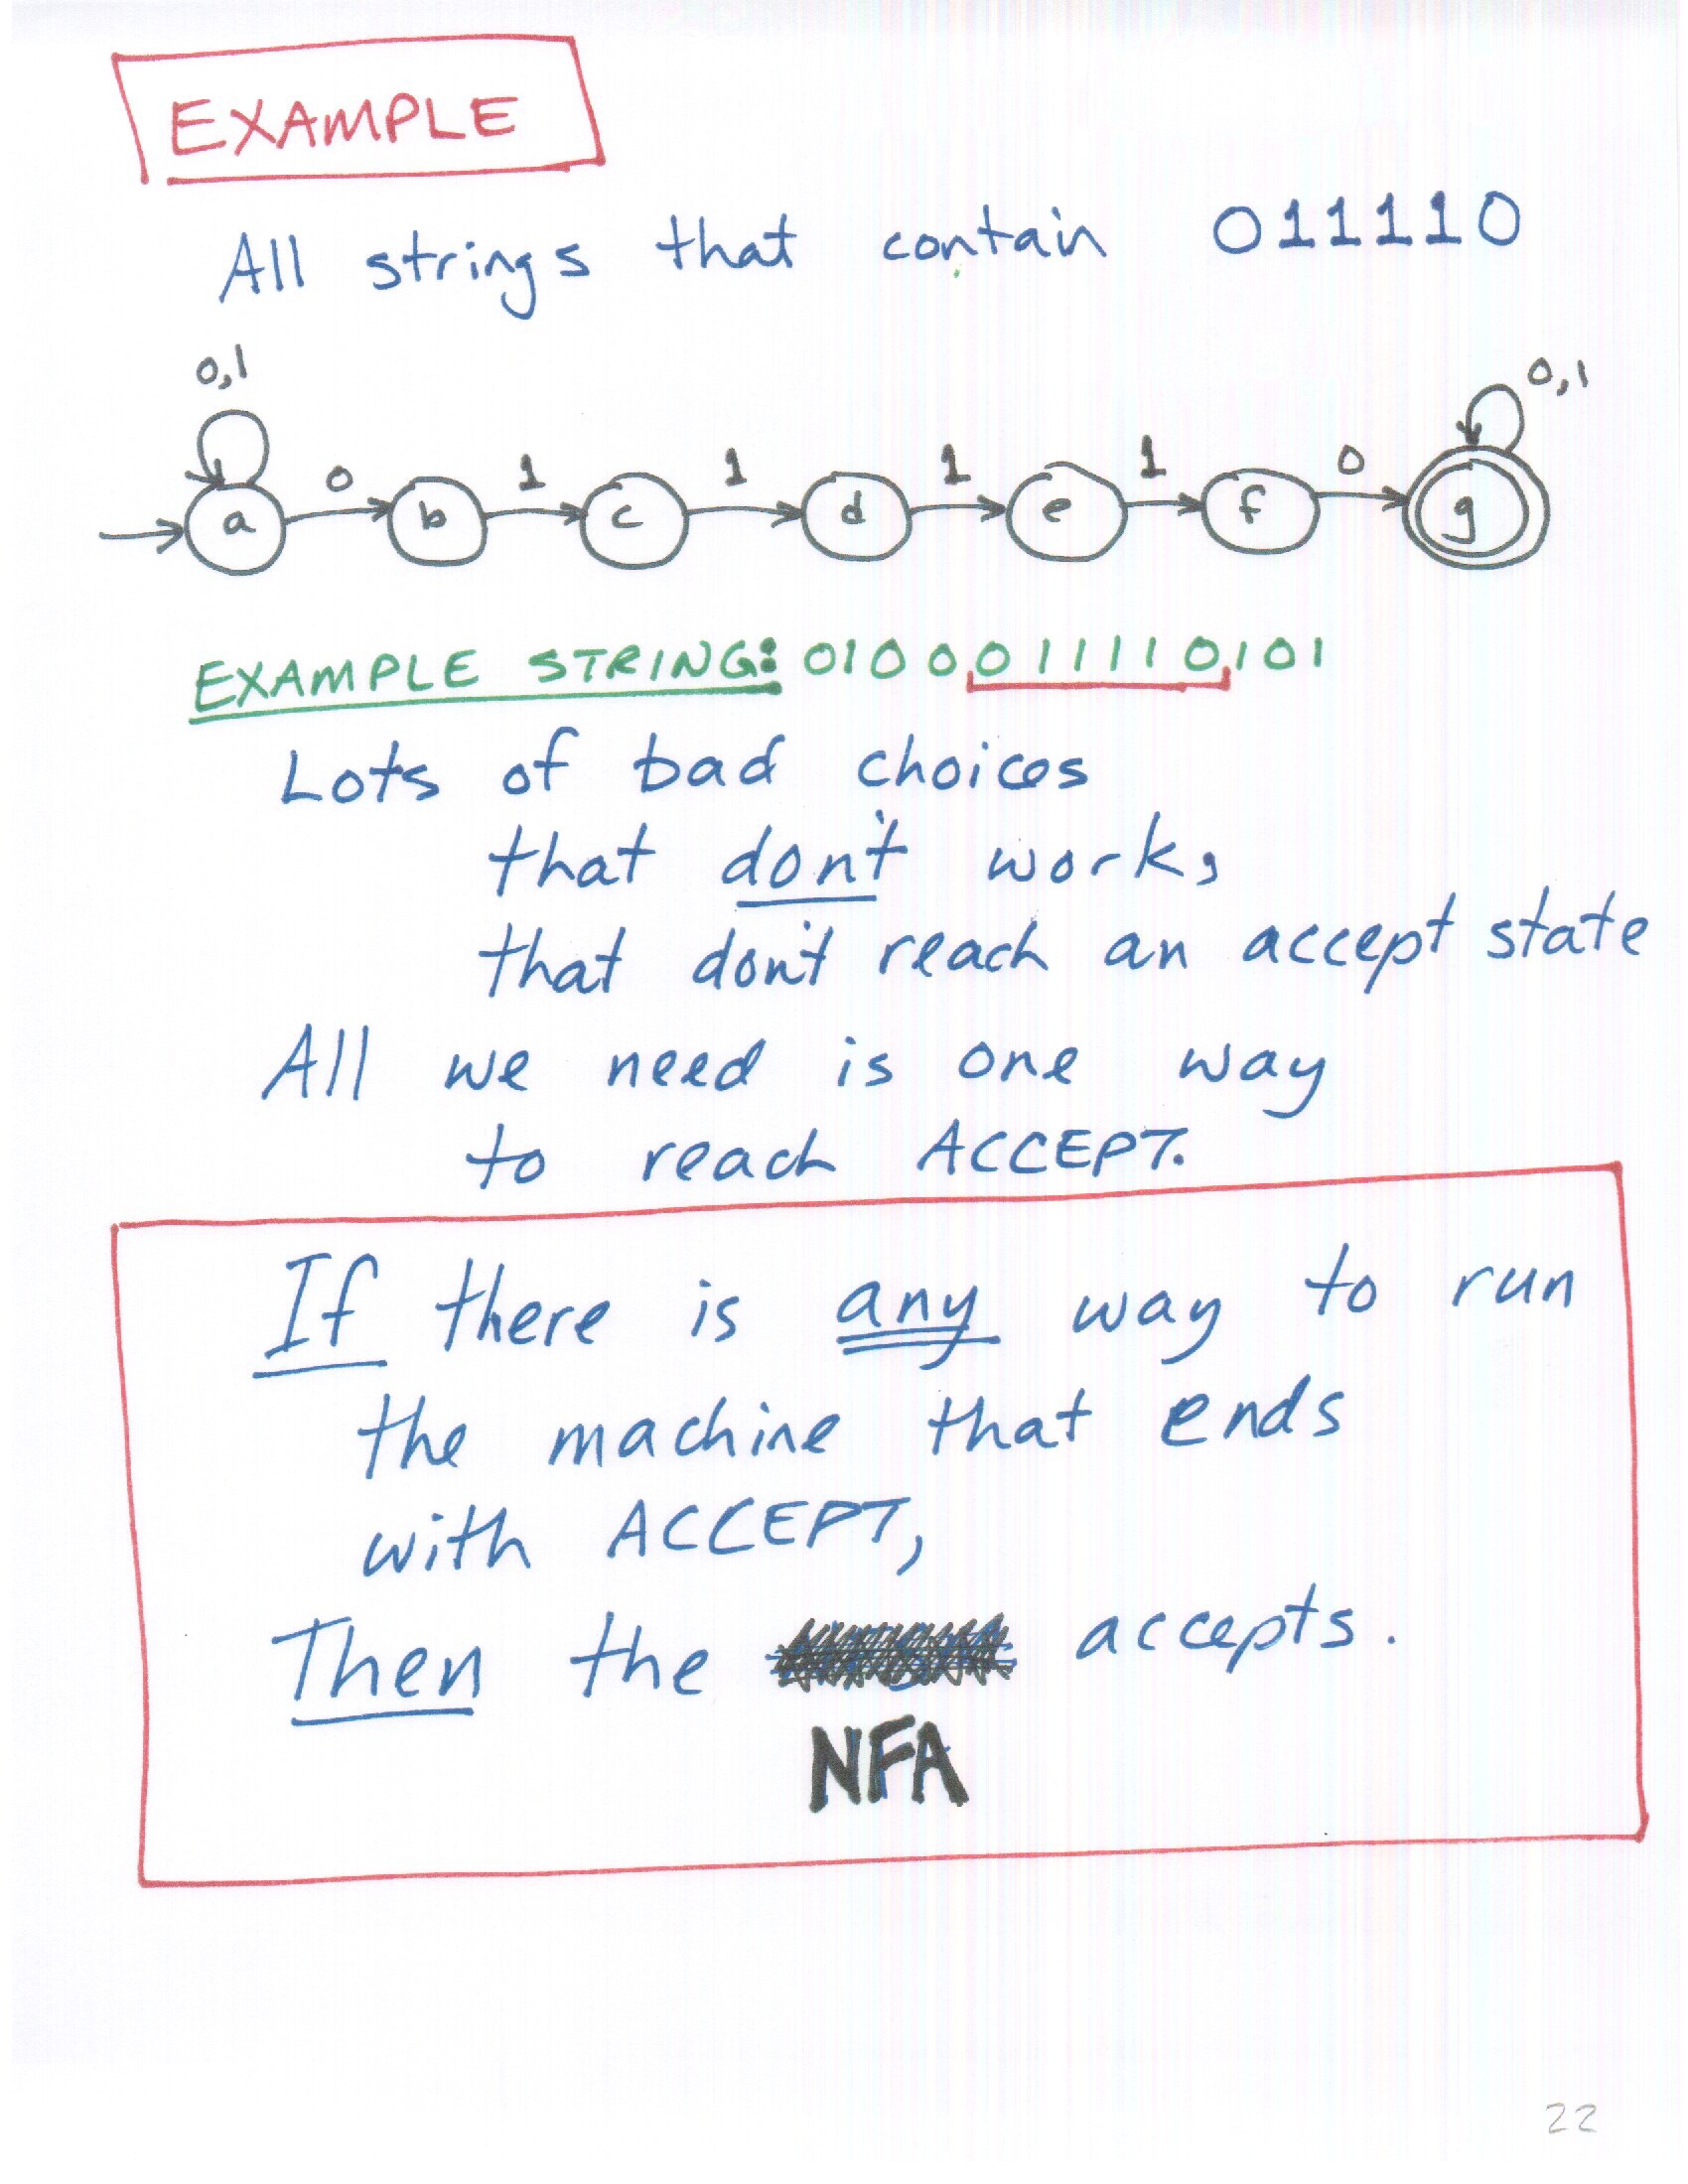 EXAMPLE
All strings that contain 011110
0,1
0,1
0 1 1 1 1 0
a b c d e f g
EXAMPLE STRING: 0100011110101
Lots of bad choices
that don't work,
that don't reach an accept state
All we need is one way
to reach ACCEPT.
If there is any way to run
the machine that ends
with ACCEPT,
Then the accepts.
NFA
22